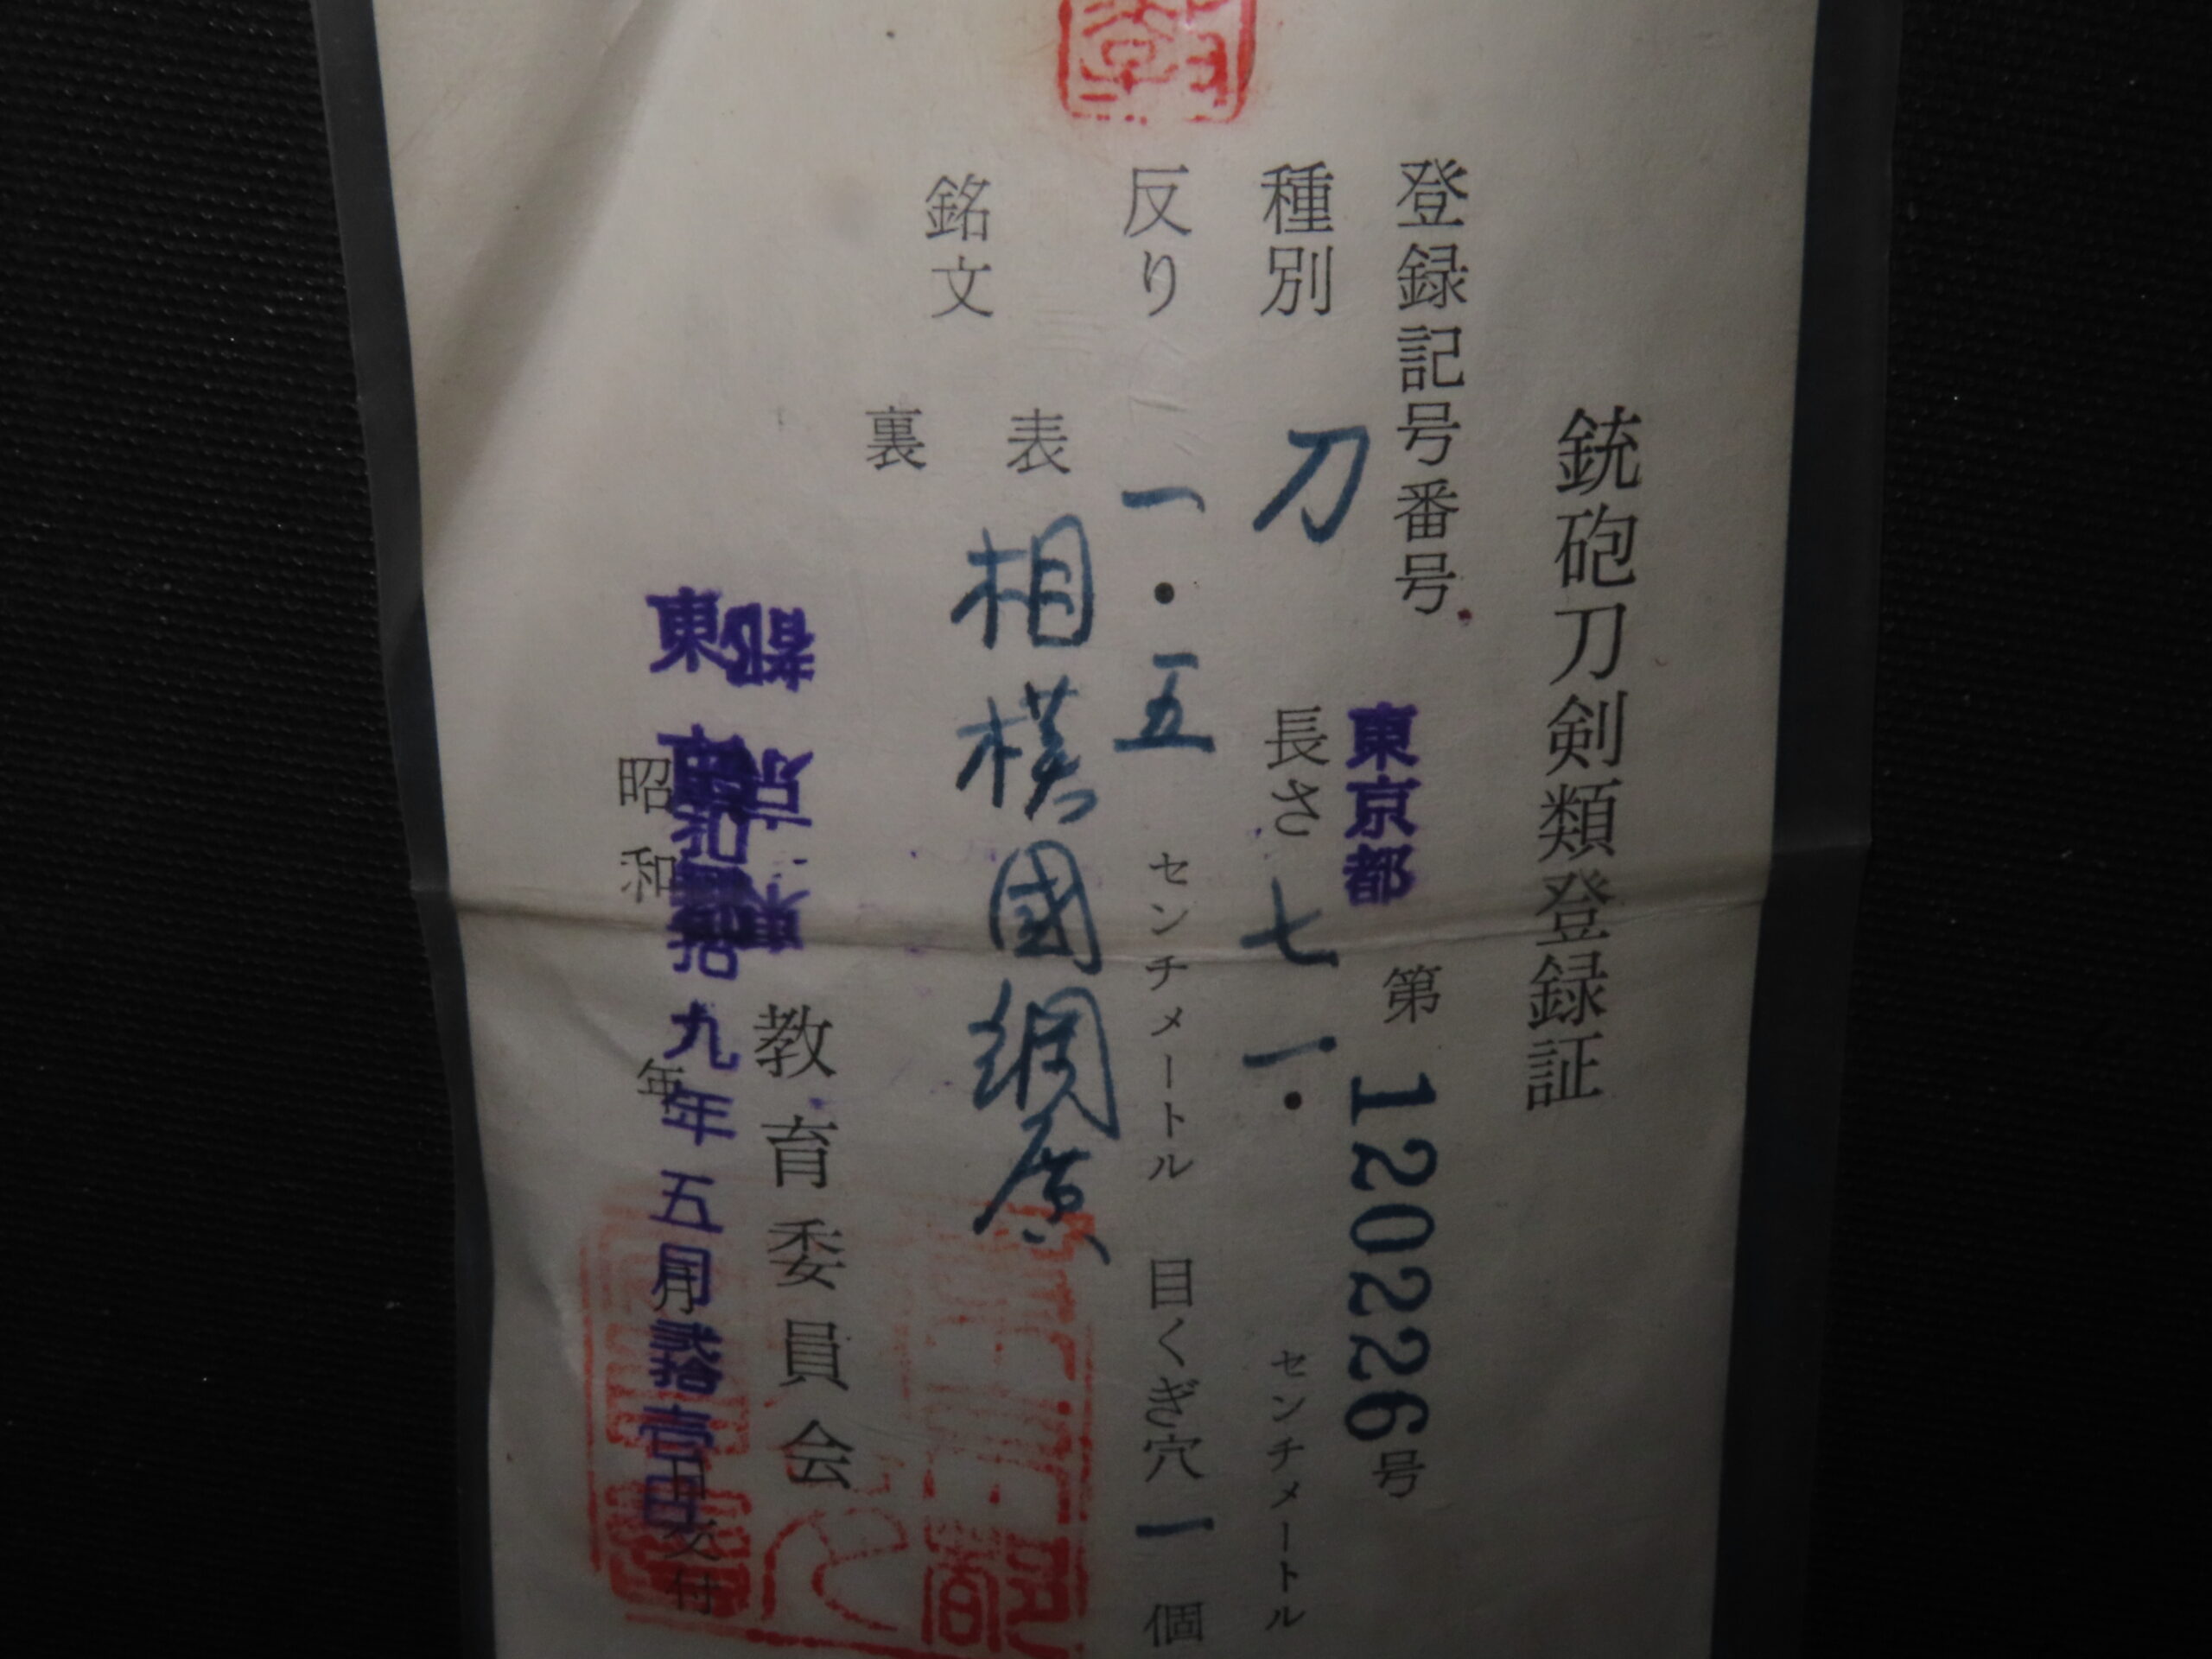 銃砲刀剣類登録証
登録記号番号 東京都 第 120226 号
種別 刀 長さ 七一・ センチメートル
反り 一・五 センチメートル 目くぎ穴 一 個
銘文
表 相模國綱廣
裏
教育委員会
昭和 九年五月弐拾壱日 交付